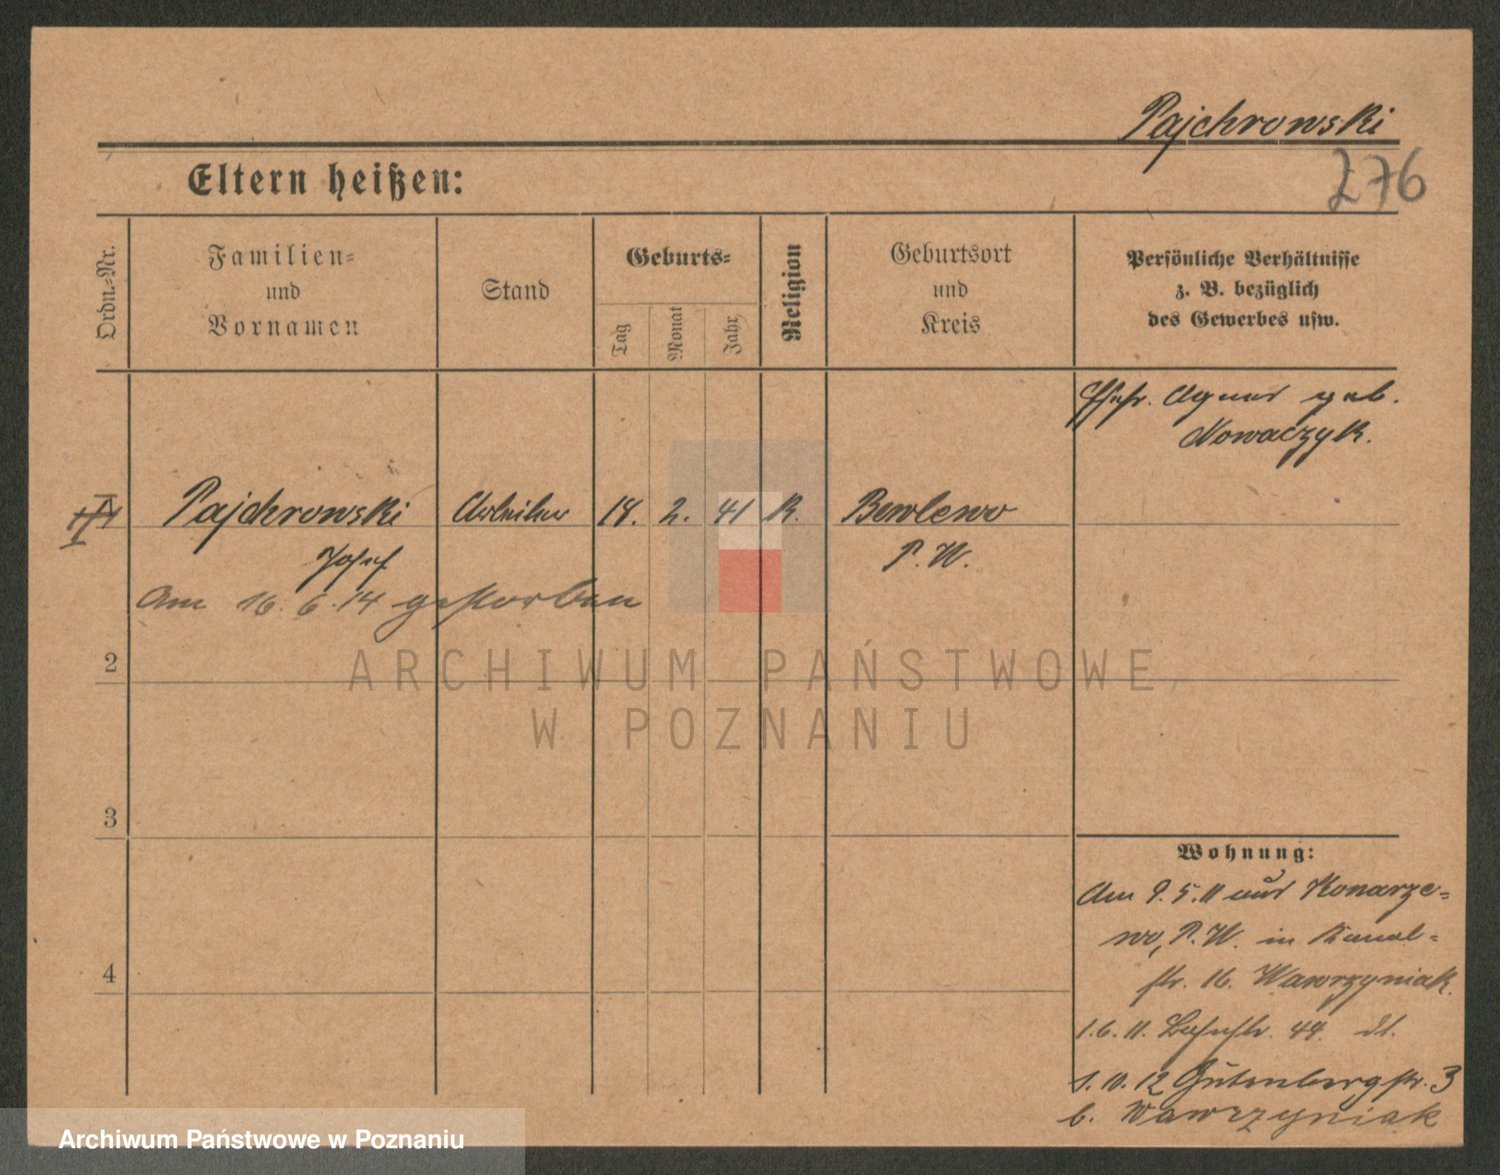 Pajchrowski
276
Eltern heißen:
Ordn.-Nr.
Familien-
und
Vornamen
Stand
Geburts-
Tag
Monat
Jahr
Religion
Geburtsort
und
Kreis
Persönliche Verhältnisse
z. B. bezüglich
des Gewerbes usw.
Ehefr. Agnes geb.
Nowaczyk.
Pajchrowski Arbeiter 18. 2. 41 K.
Josef P. W.
Am 16. 6. 14 gestorben
2
3
4
ARCHIWUM PAŃSTWOWE
W POZNANIU
Wohnung:
Am 9. 5. 11 aus Konarze-
wo, P. W. in Kanal-
str. 16. Wawrzyniak.
1. 6. 11. 44.
1. 10. 12 Gutenbergstr. 3
b. Wawrzyniak
Archiwum Państwowe w Poznaniu